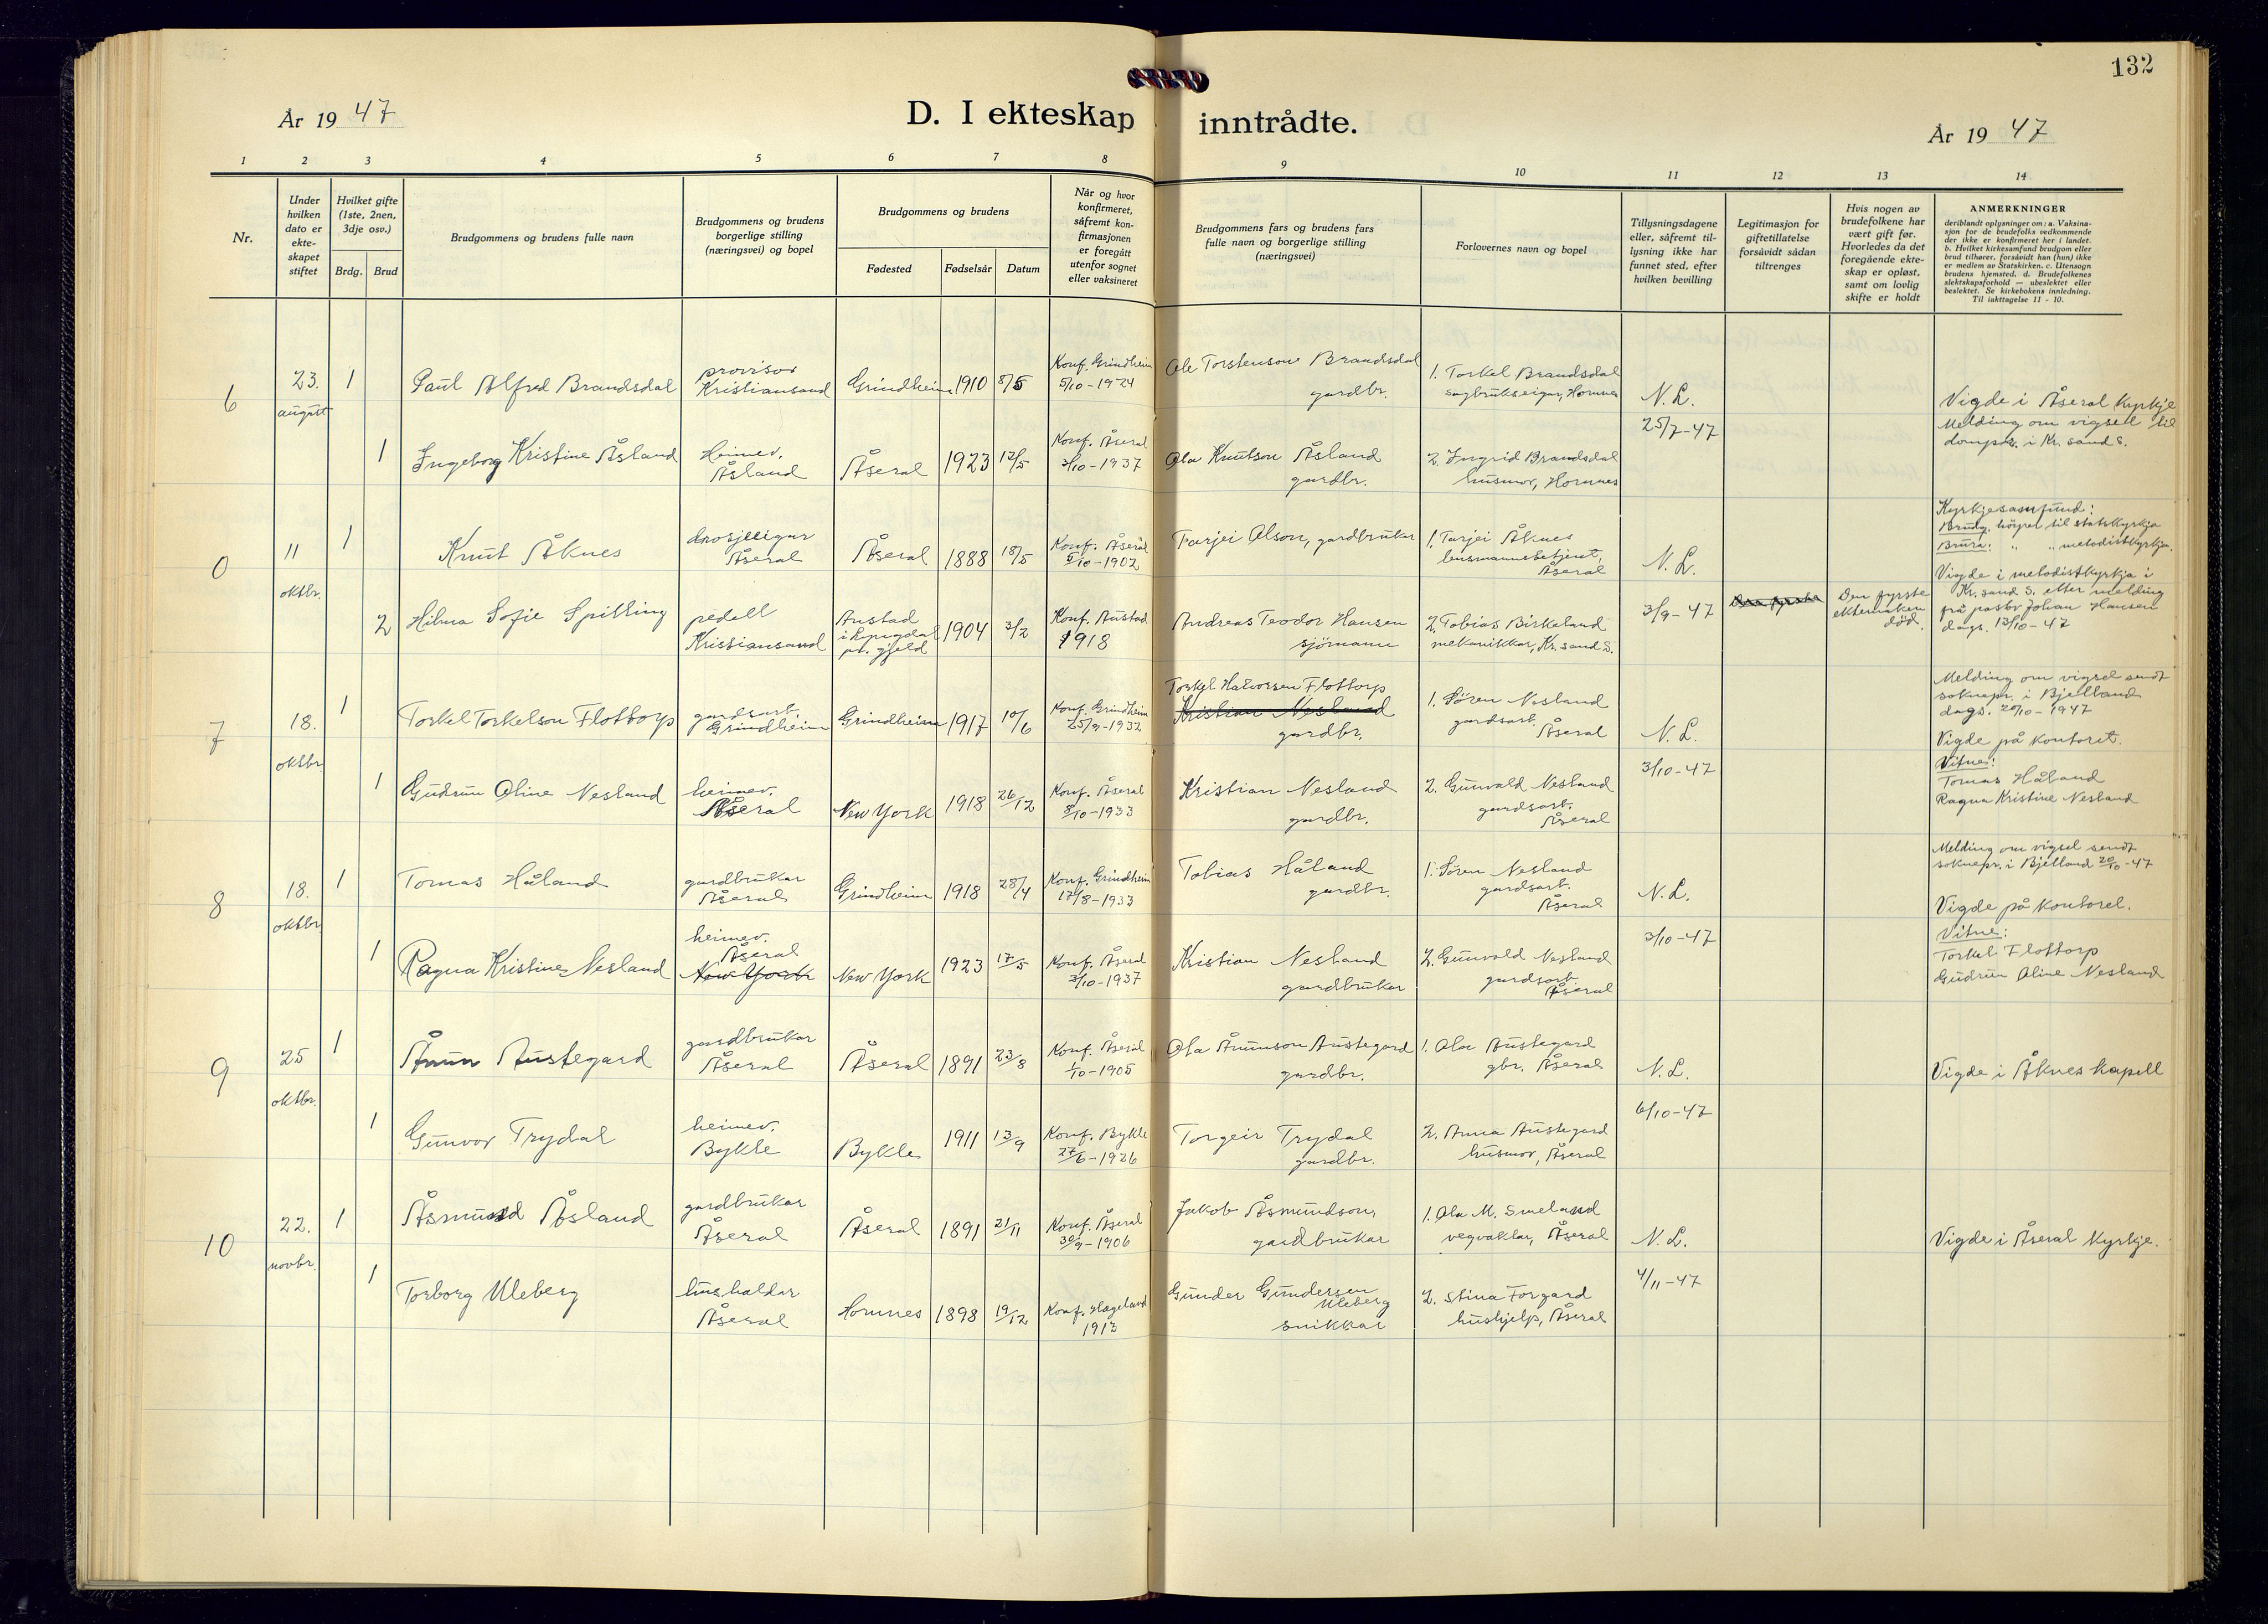 132
År 19 47
D. I ekteskap inntrådte.
År 19 47
1 2 3 4 5 6 7 8 9 10 11 12 13 14
Nr.
Under
hvilken
dato er
ekte-
skapet
stiftet
Hvilket gifte
(1ste, 2nen,
3dje osv.)
Brdg. Brud
Brudgommens og brudens fulle navn
Brudgommens og brudens
borgerlige stilling
(næringsvei) og bopel
Brudgommens og brudens
Fødested Fødselsår Datum
Når og hvor
konfirmeret,
såfremt kon-
firmasjonen
er foregått
utenfor sognet
eller vaksineret
Brudgommens fars og brudens fars
fulle navn og borgerlige stilling
(næringsvei)
Forlovernes navn og bopel
Tillysningsdagene
eller, såfremt til-
lysning ikke har
funnet sted, efter
hvilken bevilling
Legitimasjon for
giftetillatelse
forsåvidt sådan
tiltrenges
Hvis nogen av
brudefolkene har
vært gift før.
Hvorledes da det
foregående ekte-
skap er opløst,
samt om lovlig
skifte er holdt
ANMERKNINGER
deriblandt oplysninger om: a. Vaksina-
sjon for de brudefolks vedkommende
der ikke er konfirmeret her i landet.
b. Hvilket kirkesamfund brudgom eller
brud tilhører, forsåvidt han (hun) ikke
er medlem av Statskirken. c. Utensogn
brudens hjemsted. d. Brudefolkenes
slektskapsforhold — ubeslektet eller
beslektet. Se kirkebokens innledning.
Til iakttagelse 11 - 10.
6
23.
august
1
Paul Alfred Brandsdal
provisor
Kristiansand
Grindheim 1910 8/5
Konf. Grindheim
5/10 - 1924
Ole Torstenson Brandsdal
gardbr.
1. Torkel Brandsdal
sagbrukseigar, Hornnes
N. L.
25/7-47
Vigde i Åseral Kyrkje
Melding om vigsel til
dompr. i Kr. sand S.
1
Ingeborg Kristine Åsland
Heimev.
Åsland
Åseral 1923 12/5
Konf. Åseral
3/10 - 1937
Ola Knutson Åsland
gardbr.
2. Ingrid Brandsdal
husmor, Hornnes
0
11
oktbr.
1
Knut Åknes
drosjeeigar
Åseral
Åseral 1888 18/5
Konf. Åseral
5/10 - 1902
Tarjei Olson, gardbrukar
1. Tarjei Åknes
lensmannsbetjent,
Åseral
N. L.
3/9 - 47
Kyrkjesamfund:
Brudg. høyrer til statskyrkja
Brura: " " metodistkyrkja.
Vigde i metodistkyrkja i
Kr. sand S. etter melding
frå pastor Johan Hansen
dags. 13/10 - 47
2
Hilma Sofie Spilling
pedell
Kristiansand
Austad
i Lyngdal
pr. gjeld
1904 3/2
Konf. Austad
1918
Andreas Teodor Hansen
sjömann
2. Tobias Birkeland
mekanikkar, Kr. sand S.
Den fyrste
Den fyrste
ektemaken
död.
7
18.
oktbr.
1
Torkel Torkelson Flottorp
gardsarb.
Grindheim
Grindheim 1917 10/6
Konf. Grindheim
25/9 - 1932
Torkel Halvorsen Flottorp
Kristian Nesland
gardbr.
1. Sören Nesland
gardsarb.
Åseral
N. L.
3/10-47
Melding om vigsel sendt
soknepr. i Bjelland
dags. 20/10 - 1947
Vigde på kontoret.
Vitne:
Tomas Håland
Ragna Kristine Nesland
1
Gudrun Oline Nesland
heimev.
Åseral
New York 1918 26/12
Konf. Åseral
8/10 - 1933
Kristian Nesland
gardbr.
2. Gunvald Nesland
gardsarb.
Åseral
8
18.
oktbr
1
Tomas Håland
gardbrukar
Åseral
Grindheim 1918 28/4
Konf. Grindheim
17/8 - 1933
Tobias Håland
gardbr.
1. Sören Nesland
gardsarb.
Åseral
N. L.
3/10-47
Melding om vigsel sendt
soknepr. i Bjelland 20/10 - 47
Vigde på kontoret.
Vitne:
Torkel Flottorp
Gudrun Oline Nesland
1
Ragna Kristine Nesland
heimev.
Åseral
New York
New York 1923 17/5
Konf. Åseral
3/10 - 1937
Kristian Nesland
gardbrukar
2. Gunvald Nesland
gardsarb.
Åseral
9
25
oktbr.
1
Ånun Austegard
gardbrukar
Åseral
Åseral 1891 23/8
Konf. Åseral
1/10 - 1905
Ola Ånunson Austegard
gardbr.
1. Ola Austegard
gbr. Åseral
N. L.
6/10-47
Vigde i Åknes kapell
1
Gunvor Trydal
heimev.
Bykle
Bykle 1911 13/9
Konf. Bykle
27/6 - 1926
Torgeir Trydal
gardbr.
2. Anna Austegard
husmor, Åseral
10
22.
novbr.
1
Åsmund Åsland
gardbrukar
Åseral
Åseral 1891 21/11
Konf. Åseral
30/9 - 1906
Jakob Åsmundson,
gardbrukar
1. Ola M. Smeland
vegvaktar, Åseral
N. L.
4/11-47
Vigde i Åseral kyrkje.
1
Torborg Uleberg
hushaldar
Åseral
Hornnes 1898 19/12
Konf. Hægeland
1913
Gunder Gundersen
Uleberg
snikkar
2. Stina Forgard
hushjelp, Åseral